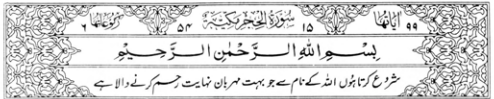 اٰیَاتُهَا ۹۹ ۱۵ سُوْرَةُ الْحِجْرِ مَكِّیَّةٌ ۵۴ رُكُوْعَاتُهَا ۶
بِسْمِ اللّٰهِ الرَّحْمٰنِ الرَّحِیْمِ
شروع کرتا ہوں اللہ کے نام سے جو بہت مہربان نہایت رحم کرنے والا ہے